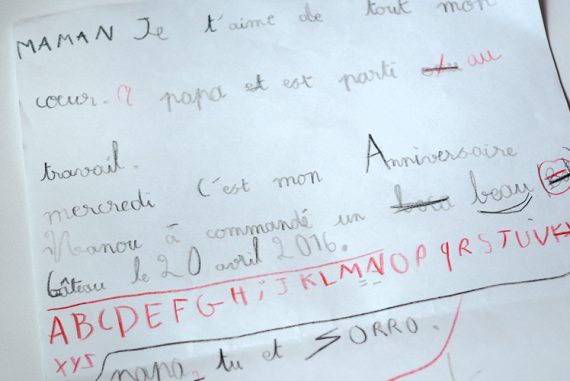 MAMAN Je t'aime de tout mon
cœur. papa est parti au
travail.
mercredi C'est mon Anniversaire
Nanou à commandé un beau
Gâteau le 20 avril 2016.
ABCDEFGHIJKLMNOPQRSTUV
XYS
papa tu et SORRO.